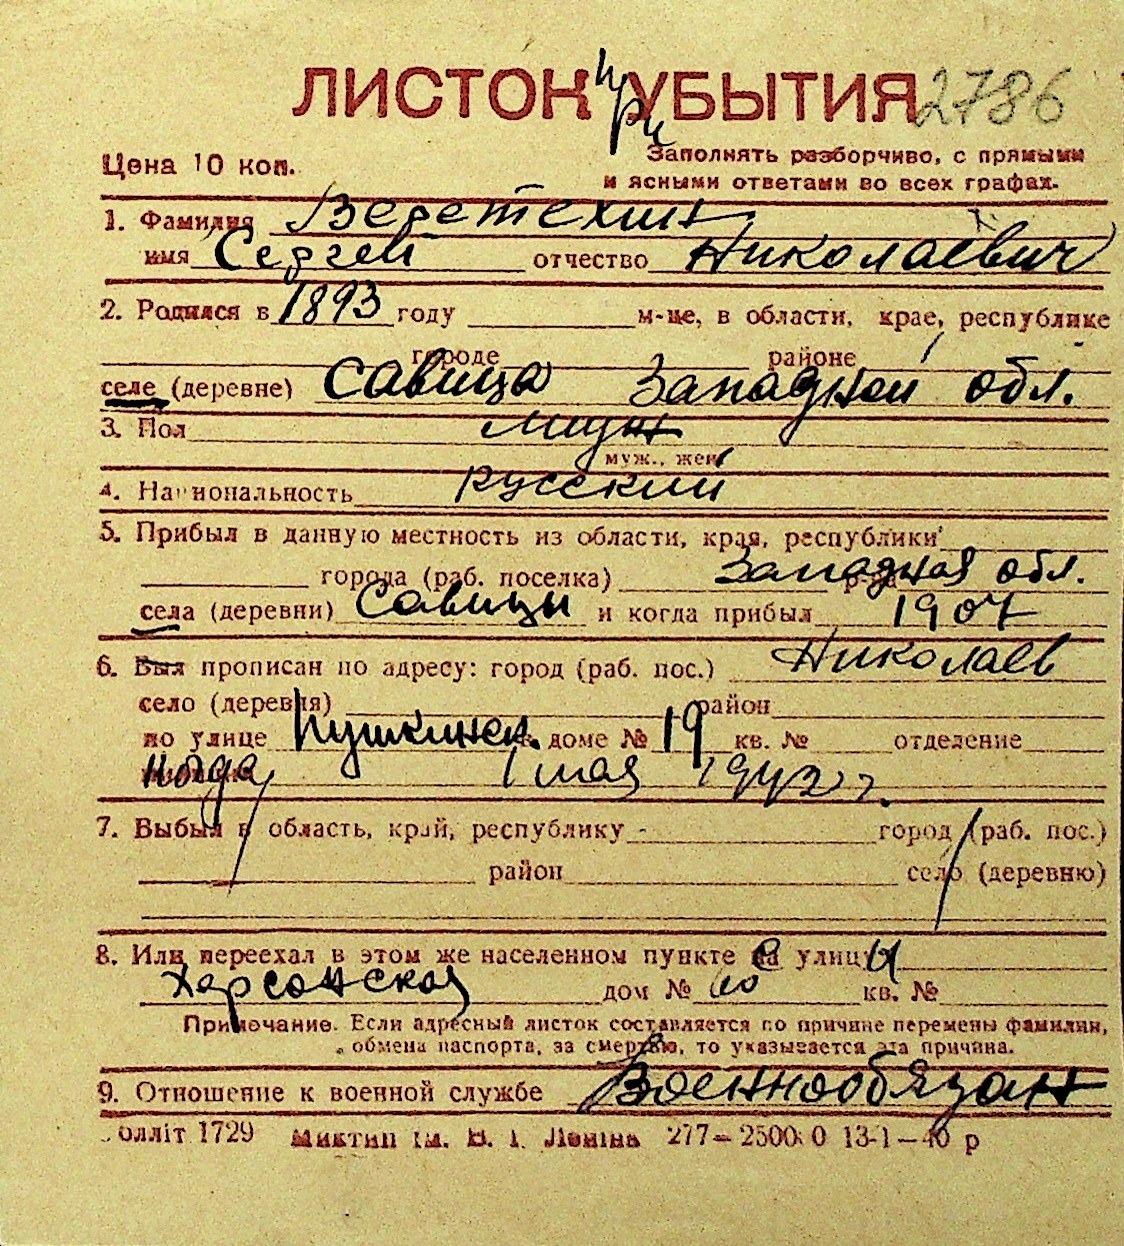 ЛИСТОК УБЫТИЯ 2786
при
Цена 10 коп.
Заполнять разборчиво, с прямыми
и ясными ответами во всех графах.
1. Фамилия Веретехин
имя Сергей отчество Николаевич
2. Родился в 1893 году м-це, в области, крае, республике
городе районе
селе (деревне) Савица Западной обл.
3. Пол мущ
муж., жен
4. Национальность русский
5. Прибыл в данную местность из области, края, республики
города (раб. поселка) Западная обл.
села (деревни) Савицы и когда прибыл 1907
6. Был прописан по адресу: город (раб. пос.) Николаев
село (деревня) район
по улице Пушкинск. в доме № 19 кв. № отделение
когда 1 мая 1942 г.
7. Выбыл в область, край, республику - город (раб. пос.)
район село (деревню)
8. Или переехал в этом же населенном пункте с улицы
Херсонская дом № 10 кв. №
Примечание. Если адресный листок составляется по причине перемены фамилии,
обмена паспорта, за смертью, то указывается эта причина.
9. Отношение к военной службе Военнообязан
олліт 1729 ім. В. І. Леніна 277 — 2500 0 13-1 — 40 р